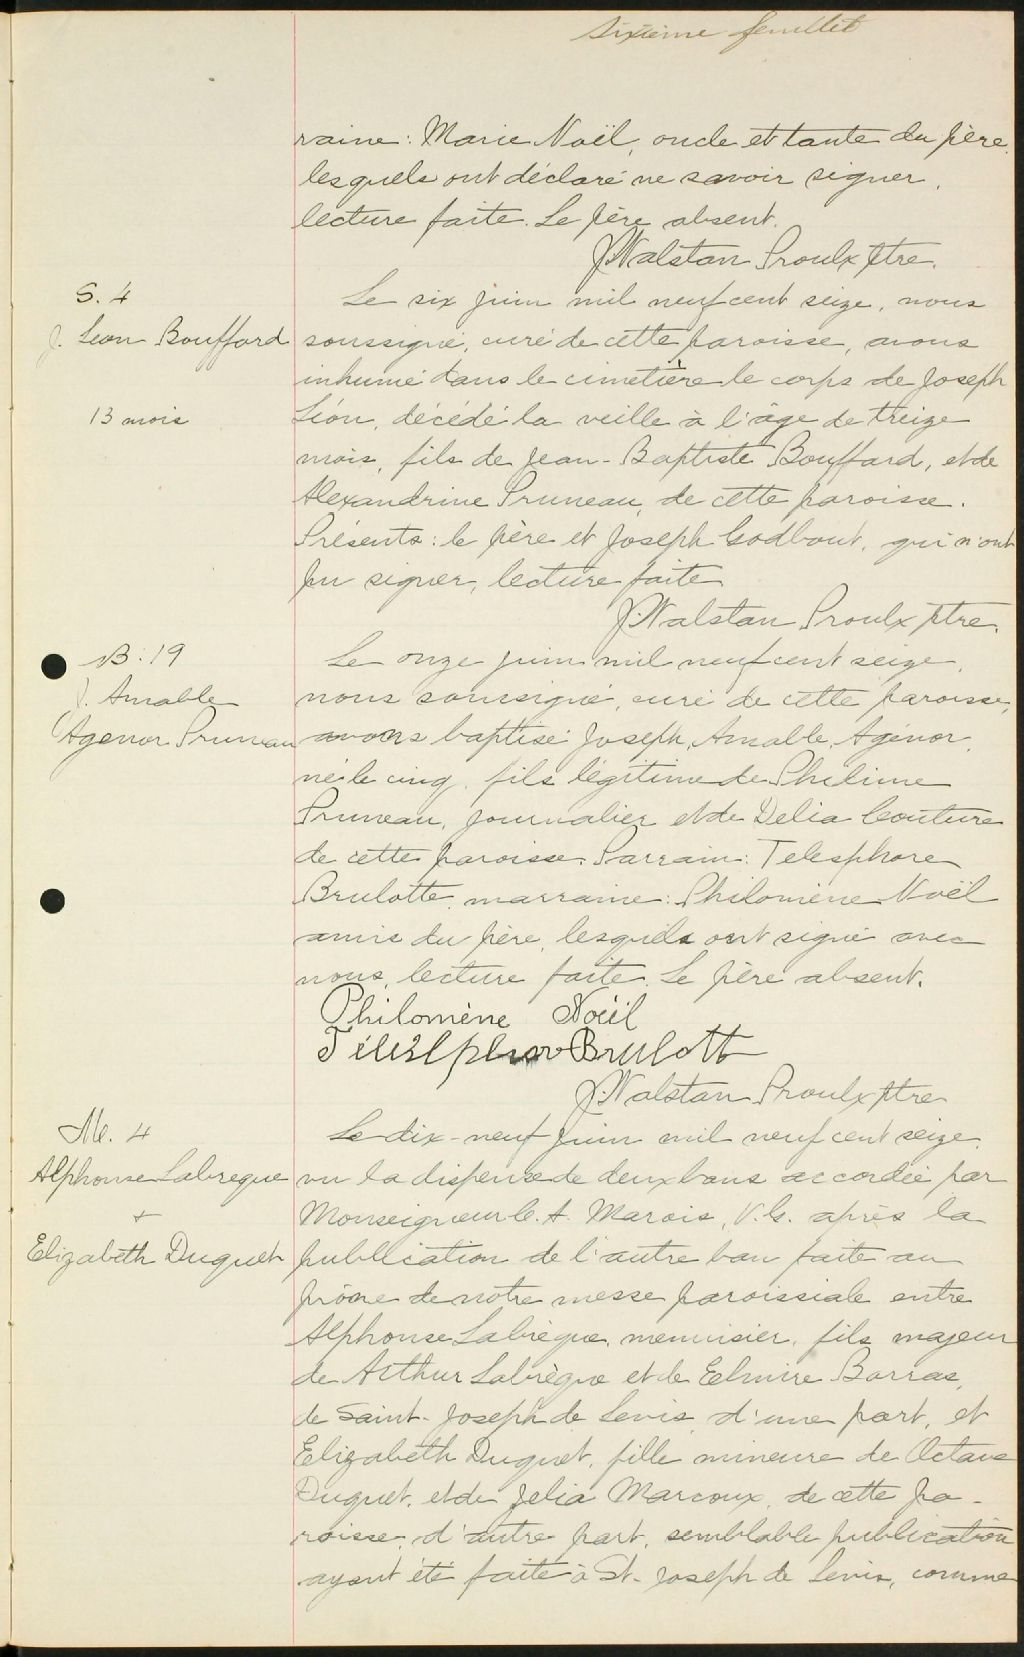 sixième feuillet
raine: Marie Noël, oncle et tante du père,
lesquels ont déclaré ne savoir signer,
lecture faite. Le père absent.
J. Walstan Proulx Ptre.
S. 4
J. Leon Bouffard
13 mois
Le six juin mil neuf cent seize, nous
soussigné, curé de cette paroisse, avons
inhumé dans le cimetière le corps de Joseph
Léon, décédé la veille à l'âge de treize
mois, fils de Jean-Baptiste Bouffard, et de
Alexandrine Pruneau, de cette paroisse.
Présents: le père et Joseph Godbout, qui n'ont
pu signer, lecture faite
J. Walstan Proulx Ptre.
B. 19
J. Amable
Agenor Pruneau
Le onze juin mil neuf cent seize,
nous soussigné, curé de cette paroisse,
avons baptisé Joseph, Amable, Agénor,
né le cinq, fils légitime de Philime
Pruneau, journalier et de Delia Couture
de cette paroisse. Parrain: Telesphore
Brulotte, marraine: Philomène Noël
amis du père, lesquels ont signé avec
nous, lecture faite. Le père absent.
Philomène Noël
Brulott
J. Walstan Proulx Ptre
M. 4
Alphonse Labregue
+
Elizabeth Duguet
Le dix-neuf juin mil neuf cent seize,
vu la dispense de deux bans accordée par
Monseigneur C. A. Marois, V. G. après la
publication de l'autre ban faite au
prône de notre messe paroissiale entre
Alphonse Labrègue, menuisier, fils majeur
de Arthur Labrègue et de Elmire Barras,
de Saint-Joseph de Levis, d'une part, et
Elizabeth Duguet, fille mineure de Octave
Duguet, et de Jelia Marcoux, de cette pa-
roisse, d'autre part, semblable publication
ayant été faite à St-Joseph de Levis, comme